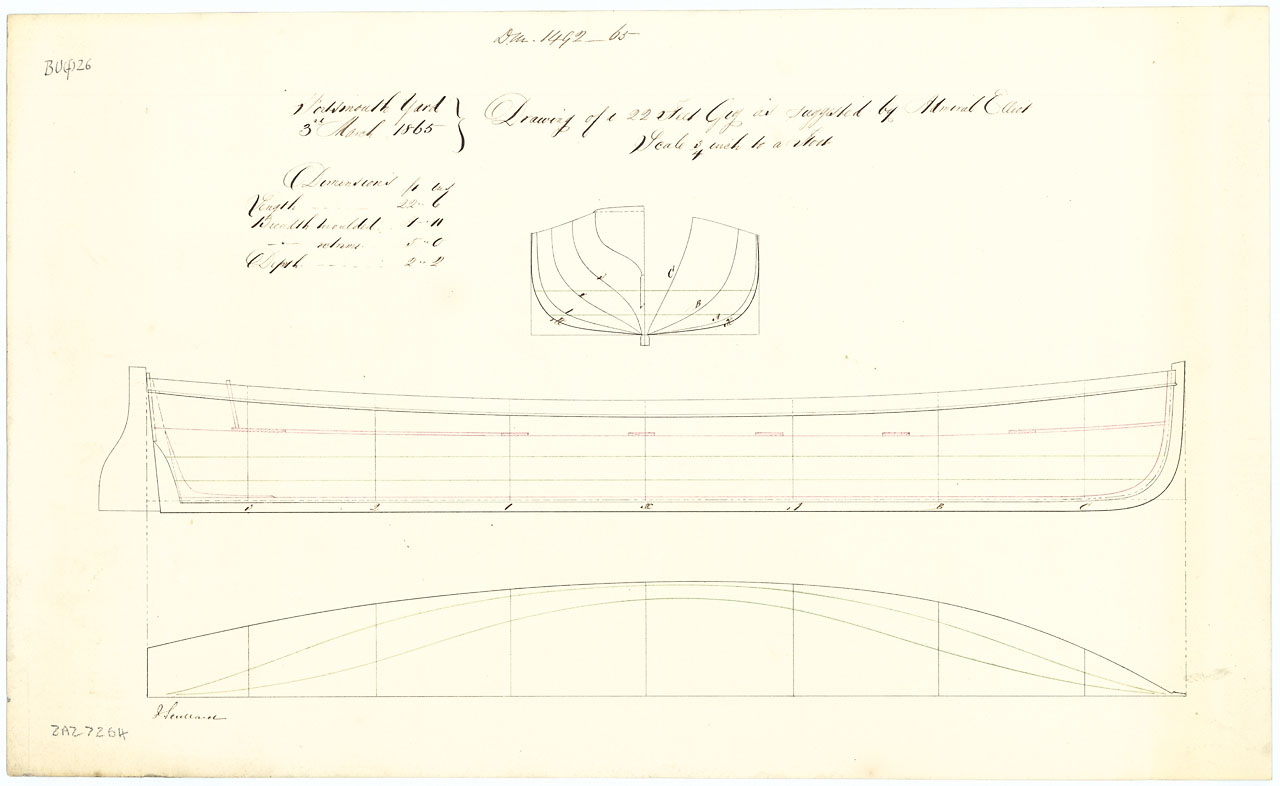 Dm. 1492 - 65
BU(4)26
Portsmouth Yard
3rd March 1865
Drawing of a 22 Feet Gig as suggested by Admiral Elliot
Scale 3/4 inch to a Foot
Dimensions ft ins
Length 22 " 6
Breadth moulded 4 " 11
-"- extreme 5 " 0
Depth 2 " 2
2 1 A B C
C B A
3 2 1 A B C
J Scullard
ZAZ7264